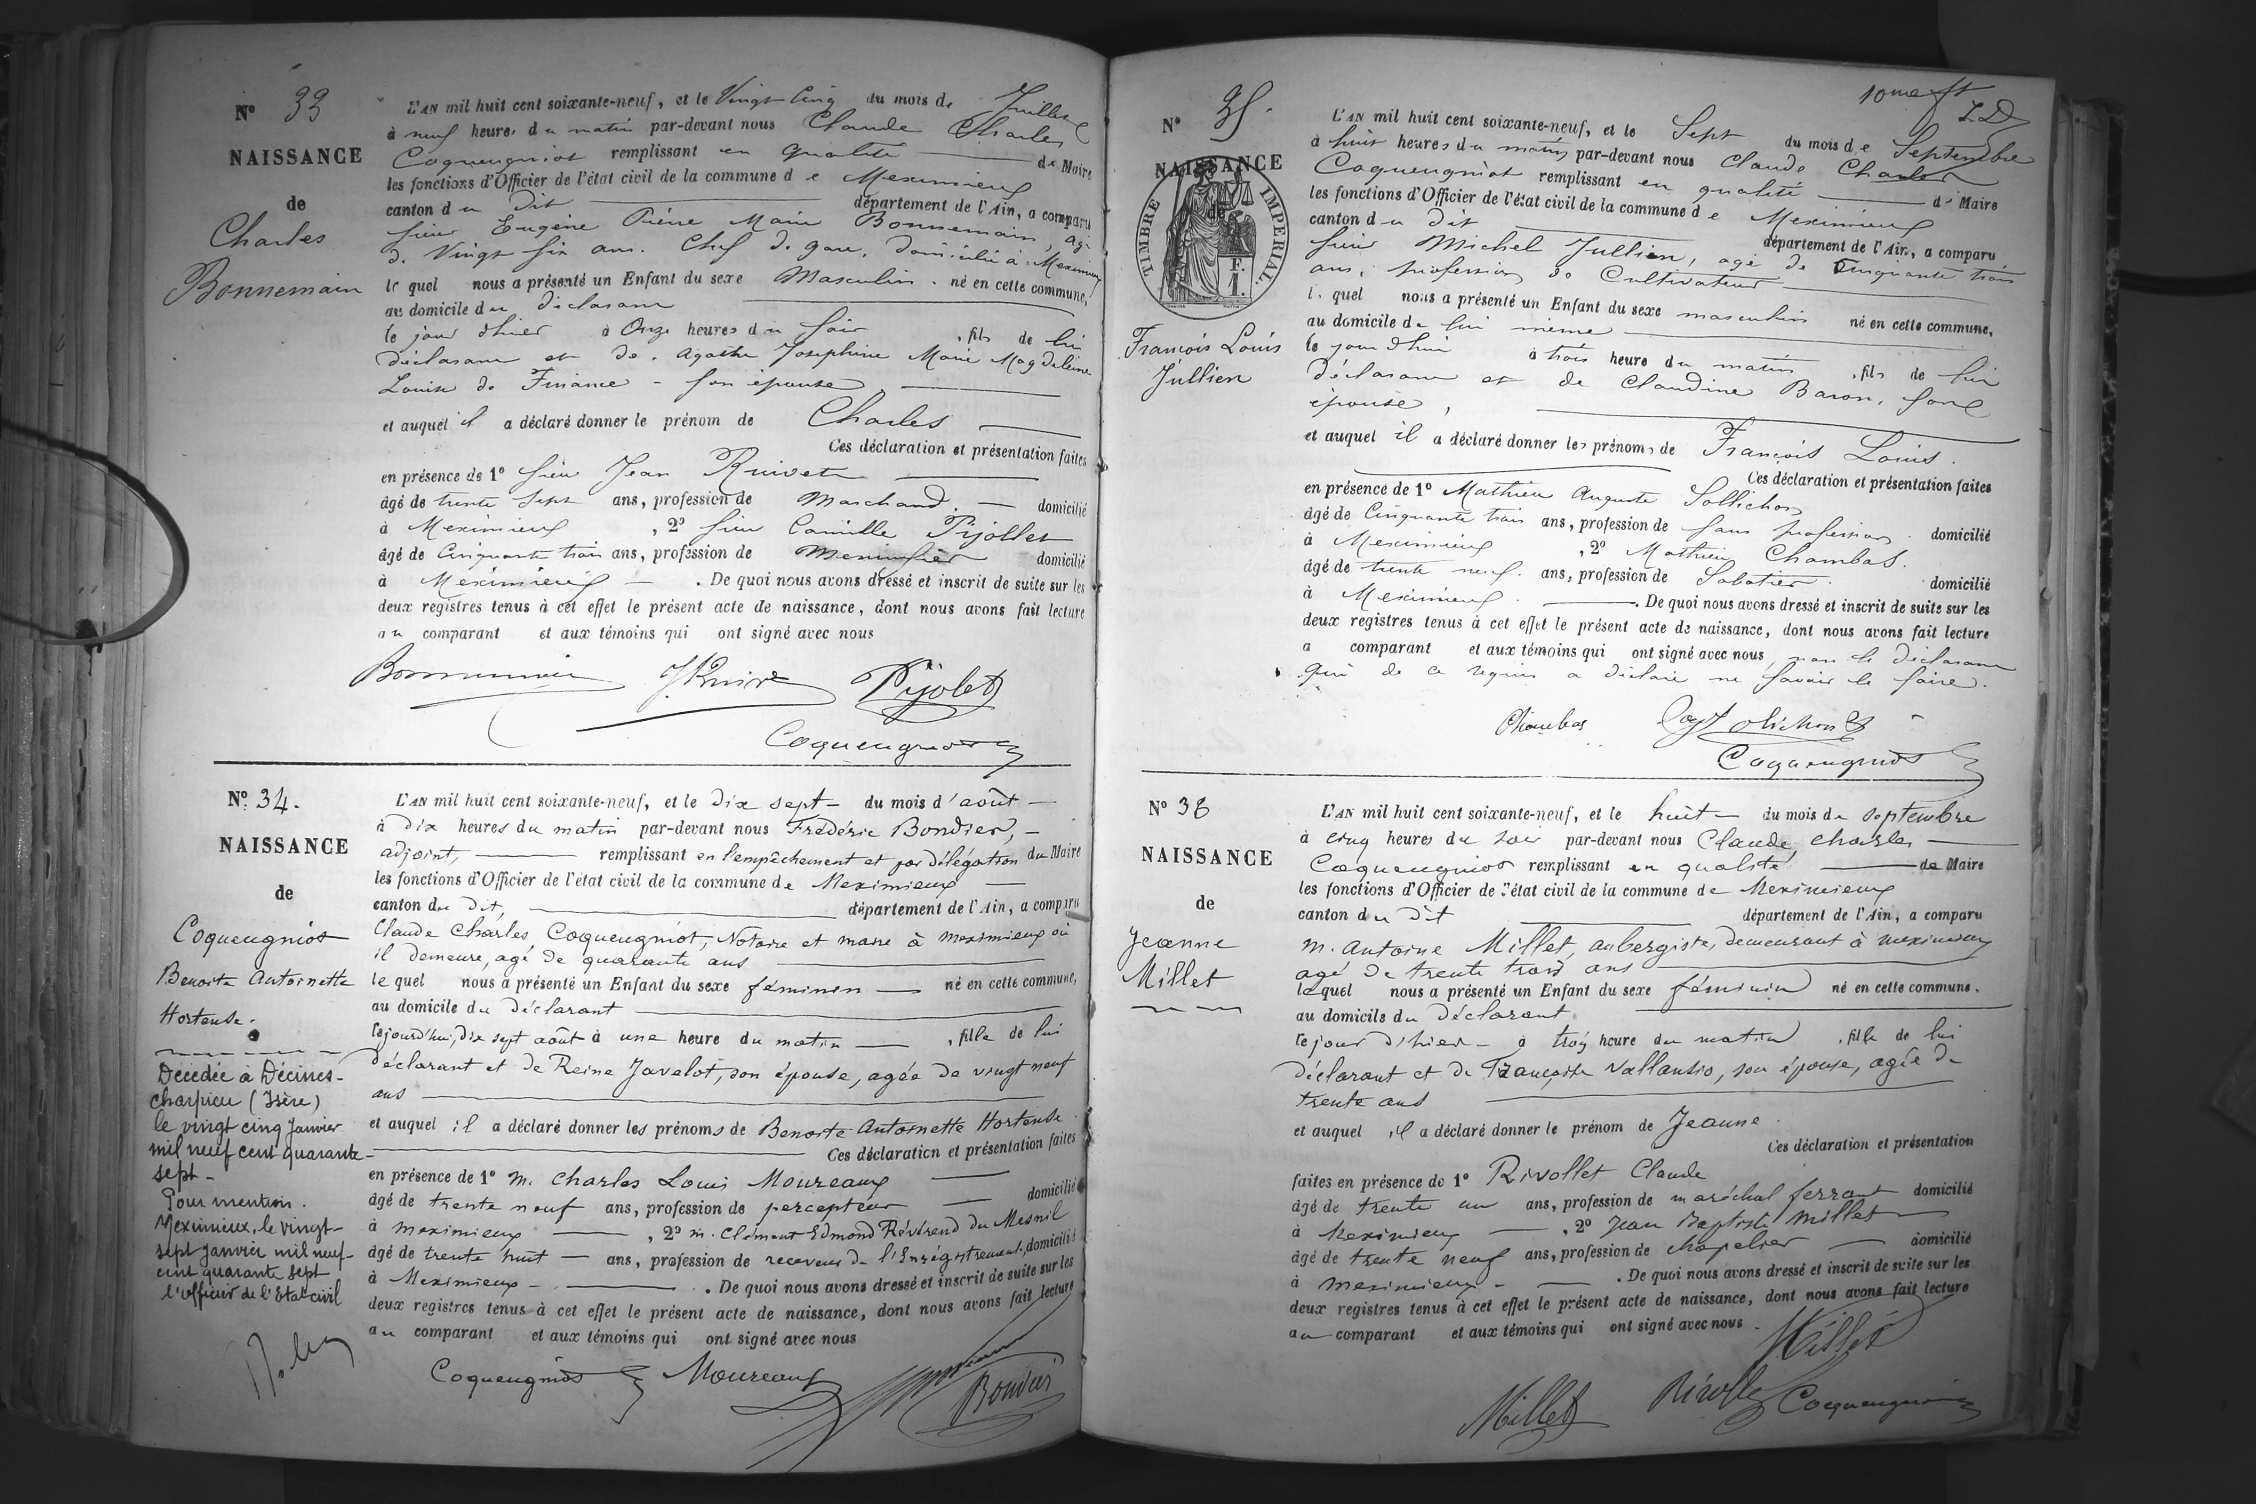 N° 33
NAISSANCE
de
Charles
Bonnemain
L'AN mil huit cent soixante-neuf, et le Vingt Cinq du mois de Juillet
à neuf heures du matin par-devant nous Claude Charles
Coqueugniot remplissant en qualité de Maire
les fonctions d'Officier de l'état civil de la commune de Meximieux
canton du dit département de l'Ain, a comparu
sieur Eugène Pierre Marie Bonnemain, agé
de Vingt six ans. Chef de gare, domicilié à Meximieux
lequel nous a présenté un Enfant du sexe Masculin. né en cette commune,
au domicile du déclarant
le jour d'hier à Onze heures du soir, fils de lui
déclarant et de. Agathe Josephine Marie Magdeleine
Louise de Finance - son épouse
et auquel il a déclaré donner le prénom de Charles
Ces déclaration et présentation faites
en présence de 1° sieur Jean Ruivet
âgé de trente sept ans, profession de Marchand. domicilié
à Meximieux, 2° sieur Camille Pijollet
âgé de Cinquante trois ans, profession de Menuisier domicilié
à Meximieux. De quoi nous avons dressé et inscrit de suite sur les
deux registres tenus à cet effet le présent acte de naissance, dont nous avons fait lecture
au comparant et aux témoins qui ont signé avec nous
Bonnemain J Ruivet Pijolet
Coqueugniot
N° 34.
NAISSANCE
de
Coqueugniot
Benoite Antoinette
Hortense.
Décédée à Décines-
Charpieu (Isère)
le vingt cinq Janvier
mil neuf cent quarante-
sept -
Pour mention.
Meximieux, le vingt-
sept janvier mil neuf-
cent quarante sept
l'officier de l'Etat civil
L'AN mil huit cent soixante-neuf, et le dix sept - du mois d'août -
à dix heures du matin par-devant nous Frédéric Bondier, -
adjoint, remplissant en l'empêchement et par délégation du Maire
les fonctions d'Officier de l'état civil de la commune de Meximieux
canton du dit, département de l'Ain, a comparu
Claude Charles Coqueugniot, Notaire et maire à Meximieux où
il demeure, agé de quarante ans
lequel nous a présenté un Enfant du sexe féminin né en cette commune,
au domicile du déclarant
cejourd'hui, dix sept août à une heure du matin, fille de lui
déclarant et de Reine Javelot, son épouse, agée de vingt neuf
ans
et auquel il a déclaré donner les prénoms de Benoite Antoinette Hortense
Ces déclaration et présentation faites
en présence de 1° M. Charles Louis Moureaux
âgé de trente neuf ans, profession de percepteur domicilié
à Meximieux, 2° M. Clément Edmond Révérend du Mesnil
âgé de trente huit - ans, profession de receveur de l'Enregistrement, domicilié
à Meximieux -. De quoi nous avons dressé et inscrit de suite sur les
deux registres tenus à cet effet le présent acte de naissance, dont nous avons fait lecture
au comparant et aux témoins qui ont signé avec nous
Coqueugniot Moureaux
Bondier
10me ft
N° 35.
NAISSANCE
de
TIMBRE IMPERIAL.
F.
1.
François Louis
Jullien
L'AN mil huit cent soixante-neuf, et le Sept du mois de Septembre
à huit heures du matin par-devant nous Claude Charles
Coqueugniot remplissant en qualité de Maire
les fonctions d'Officier de l'état civil de la commune de Meximieux
canton du dit département de l'Ain, a comparu
sieur Michel Jullien, agé de Cinquante trois
ans, profession de Cultivateur
lequel nous a présenté un Enfant du sexe masculin né en cette commune,
au domicile de lui même
le jour d'hui à trois heure du matin, fils de lui
déclarant et de Claudine Baron, son
épouse,
et auquel il a déclaré donner les prénoms de François Louis.
Ces déclaration et présentation faites
en présence de 1° Mathieu Auguste Sollichon
âgé de Cinquante trois ans, profession de sans profession. domicilié
à Meximieux, 2° Mathieu Chambas.
âgé de trente neuf. ans, profession de Sabotier. domicilié
à Meximieux. De quoi nous avons dressé et inscrit de suite sur les
deux registres tenus à cet effet le présent acte de naissance, dont nous avons fait lecture
a comparant et aux témoins qui ont signé avec nous, non le déclarant
qui de ce requis a déclaré ne savoir le faire.
Chambas
Coqueugniot
N° 36
NAISSANCE
de
Jeanne
Millet
L'AN mil huit cent soixante-neuf, et le huit - du mois de septembre
à cinq heures du soir par-devant nous Claude, Charles -
Coqueugniot remplissant en qualité de Maire
les fonctions d'Officier de l'état civil de la commune de Meximieux
canton du dit département de l'Ain, a comparu
M. Antoine Millet, aubergiste, demeurant à Meximieux
agé de trente trois ans
lequel nous a présenté un Enfant du sexe féminin né en cette commune.
au domicile du déclarant
le jour d'hier - à trois heure du matin, fille de lui
déclarant et de Françoise Vallansio, son épouse, agée de
trente ans
et auquel il a déclaré donner le prénom de Jeanne.
Ces déclaration et présentation
faites en présence de 1° Rivollet Claude
âgé de trente un ans, profession de maréchal ferrant domicilié
à Meximieux, 2° Jean Baptiste Millet
âgé de trente neuf ans, profession de chapelier domicilié
à Meximieux -. De quoi nous avons dressé et inscrit de suite sur les
deux registres tenus à cet effet le présent acte de naissance, dont nous avons fait lecture
au comparant et aux témoins qui ont signé avec nous.
Millet
Millet Rivollet Coqueugniot